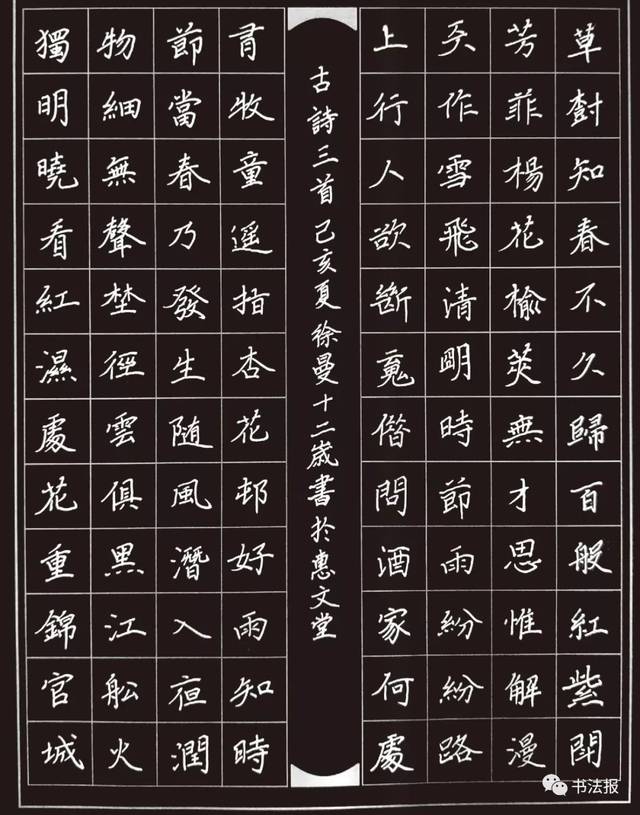 草樹知春不久歸百般紅紫鬥
芳菲楊花榆莢無才思惟解漫
天作雪飛清明時節雨紛紛路
上行人欲斷魂借問酒家何處
古詩三首己亥夏徐曼十二歲書於惠文堂
有牧童遥指杏花邨好雨知時
節當春乃發生随風潛入夜潤
物細無聲埜徑雲俱黑江船火
獨明曉看紅濕處花重錦官城
书法报